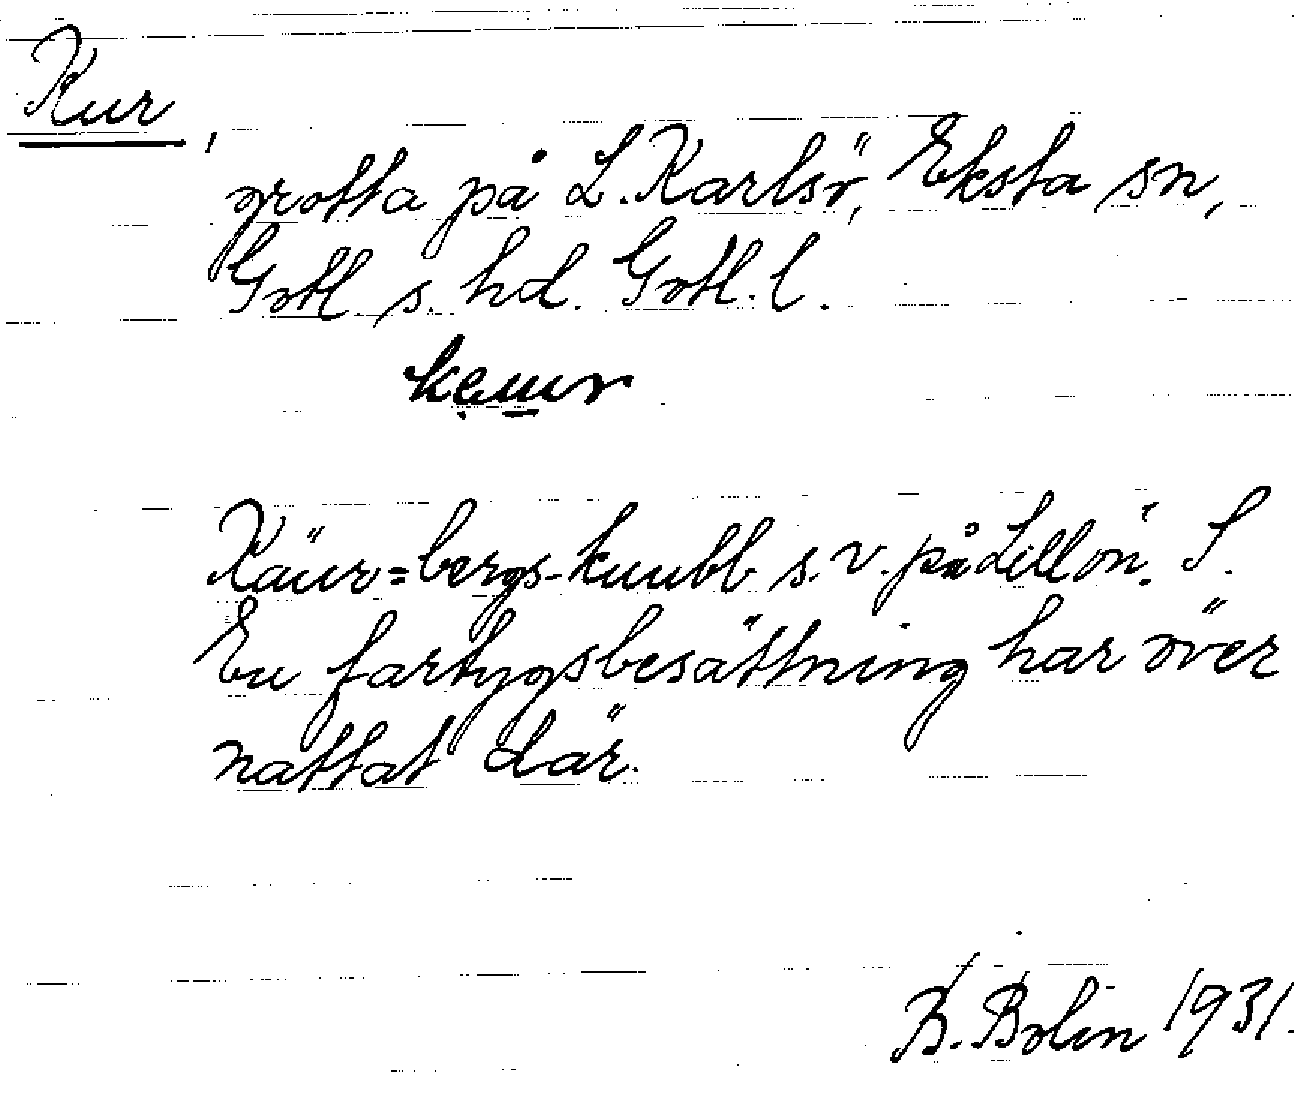 Kur,
grotta på L. Karlsö, Eksta sn,
Gotl s. hd. Gotl. l.
keur
Käur=bergs-kuubb s.v. på Lillön. S.
En fartygsbesättning har över
nattat där.
B. Bolin 1931.